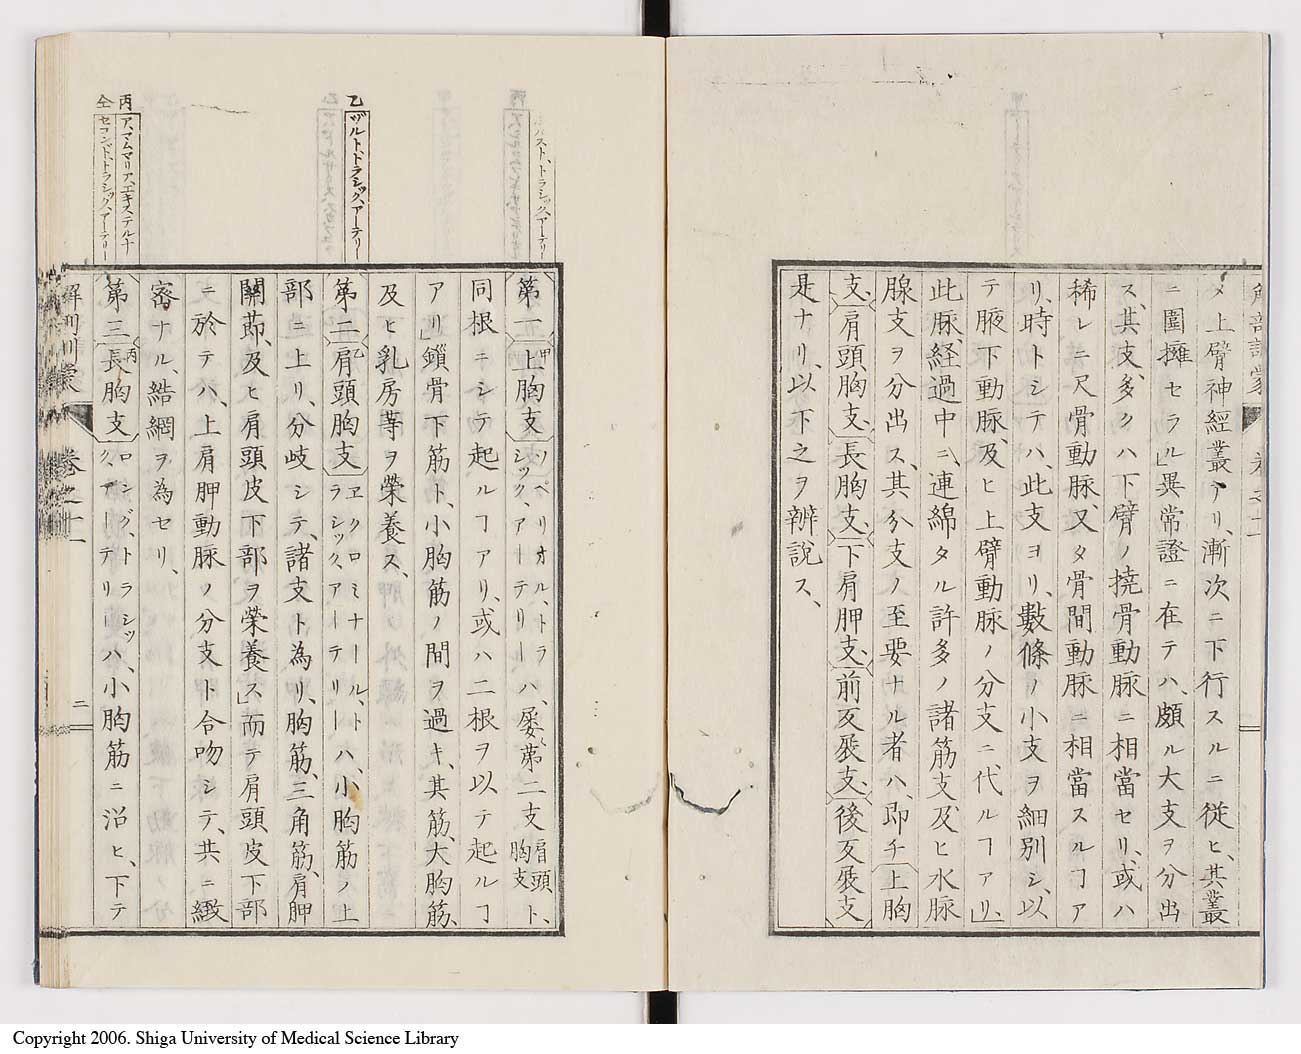 メ上臂神經叢アリ、漸次ニ下行スルニ従ヒ、其叢
ニ圍擁セラル」異常證ニ在テハ、頗ル大支ヲ分出
ス、其支、多クハ下臂ノ撓骨動脈ニ相當セリ、或ハ
稀レニ尺骨動脈、又タ骨間動脈ニ相當スルヿア
リ、時トシテハ、此支ヨリ、數條ノ小支ヲ細別シ、以
テ腋下動脈、及ヒ上臂動脈ノ分支ニ、代ルヿアリ、」
此脈、経過中ニ、連綿タル許多ノ諸筋支、及ヒ水脈
腺支ヲ分出ス、其分支ノ至要ナル者ハ、即チ上胸
支、肩頭胸支、長胸支、下肩胛支、前叐裖支、後叐裖支
是ナリ、以下之ヲ辨説ス、
ハスト、トラシック、アーテリー
乙
ヅルト、トラシック、アーテリー
丙
ア、マムマリア、エキステルナ
仝
セコンド、トラシック、アーテリー
第一甲上胸支 ソペリオル、トラシック、アーテリーハ、屡〻第二支 肩頭胸支 ト、
同根ニシテ起ルヿアリ、或ハ二根ヲ以テ起ルヿ
アリ」鎻骨下筋ト、小胸筋ノ間ヲ過キ、其筋、大胸筋、
及ヒ乳房等ヲ榮養ス、
第二乙肩頭胸支 ヱクロミナール、トラシック、アーテリーハ、小胸筋ノ上
部ニ上リ、分岐シテ、諸支ト為リ、胸筋、三角筋、肩胛
關節、及ヒ肩頭皮下部ヲ榮養ス」而テ肩頭、皮下部
ニ於テハ、上肩胛動脈ノ分支ト合吻シテ、共ニ緻
密ナル、結網ヲ為セリ、
第三丙長胸支 ロング、トラシック、アーテリーハ、小胸筋ニ沿ヒ、下テ
卷之十二
二
Copyright 2006. Shiga University of Medical Science Library